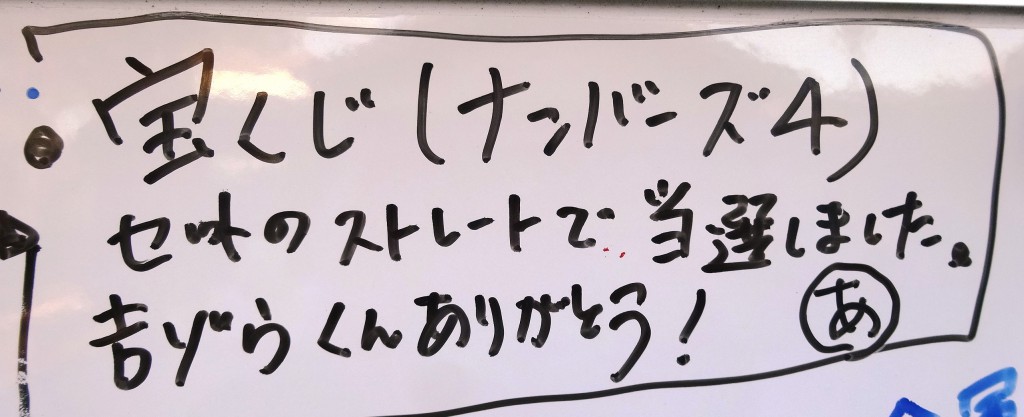 宝くじ(ナンバーズ4)
セットのストレートで当選しました。
吉ゾウくんありがとう!
あ